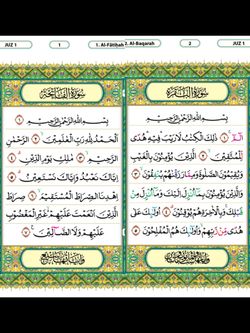 JUZ 1
1
1. Al-Fâtiḥah
2. Al-Baqarah
2
JUZ 1
سُورَةُ الْفَاتِحَةِ
بِسْمِ اللهِ الرَّحْمٰنِ الرَّحِيْمِ
اَلْحَمْدُ لِلّٰهِ رَبِّ الْعٰلَمِيْنَ ۝ الرَّحْمٰنِ
الرَّحِيْمِ ۝ مٰلِكِ يَوْمِ الدِّيْنِ ۝
اِيَّاكَ نَعْبُدُ وَاِيَّاكَ نَسْتَعِيْنُ ۝
اِهْدِنَا الصِّرَاطَ الْمُسْتَقِيْمَ ۝ صِرَاطَ
الَّذِيْنَ اَنْعَمْتَ عَلَيْهِمْ غَيْرِ الْمَغْضُوْبِ
عَلَيْهِمْ وَلَا الضَّآلِّيْنَ ۝
سُورَةُ الْبَقَرَةِ
بِسْمِ اللهِ الرَّحْمٰنِ الرَّحِيْمِ
الٓمّٓ ۝ ذٰلِكَ الْكِتٰبُ لَا رَيْبَ فِيْهِ هُدًى
لِّلْمُتَّقِيْنَ ۝ الَّذِيْنَ يُؤْمِنُوْنَ بِالْغَيْبِ
وَيُقِيْمُوْنَ الصَّلٰوةَ وَمِمَّا رَزَقْنٰهُمْ يُنْفِقُوْنَ ۝
وَالَّذِيْنَ يُؤْمِنُوْنَ بِمَآ اُنْزِلَ اِلَيْكَ وَمَآ اُنْزِلَ مِنْ
قَبْلِكَ وَبِالْاٰخِرَةِ هُمْ يُوْقِنُوْنَ ۝ اُولٰٓئِكَ عَلٰى
هُدًى مِّنْ رَّبِّهِمْ وَاُولٰٓئِكَ هُمُ الْمُفْلِحُوْنَ ۝